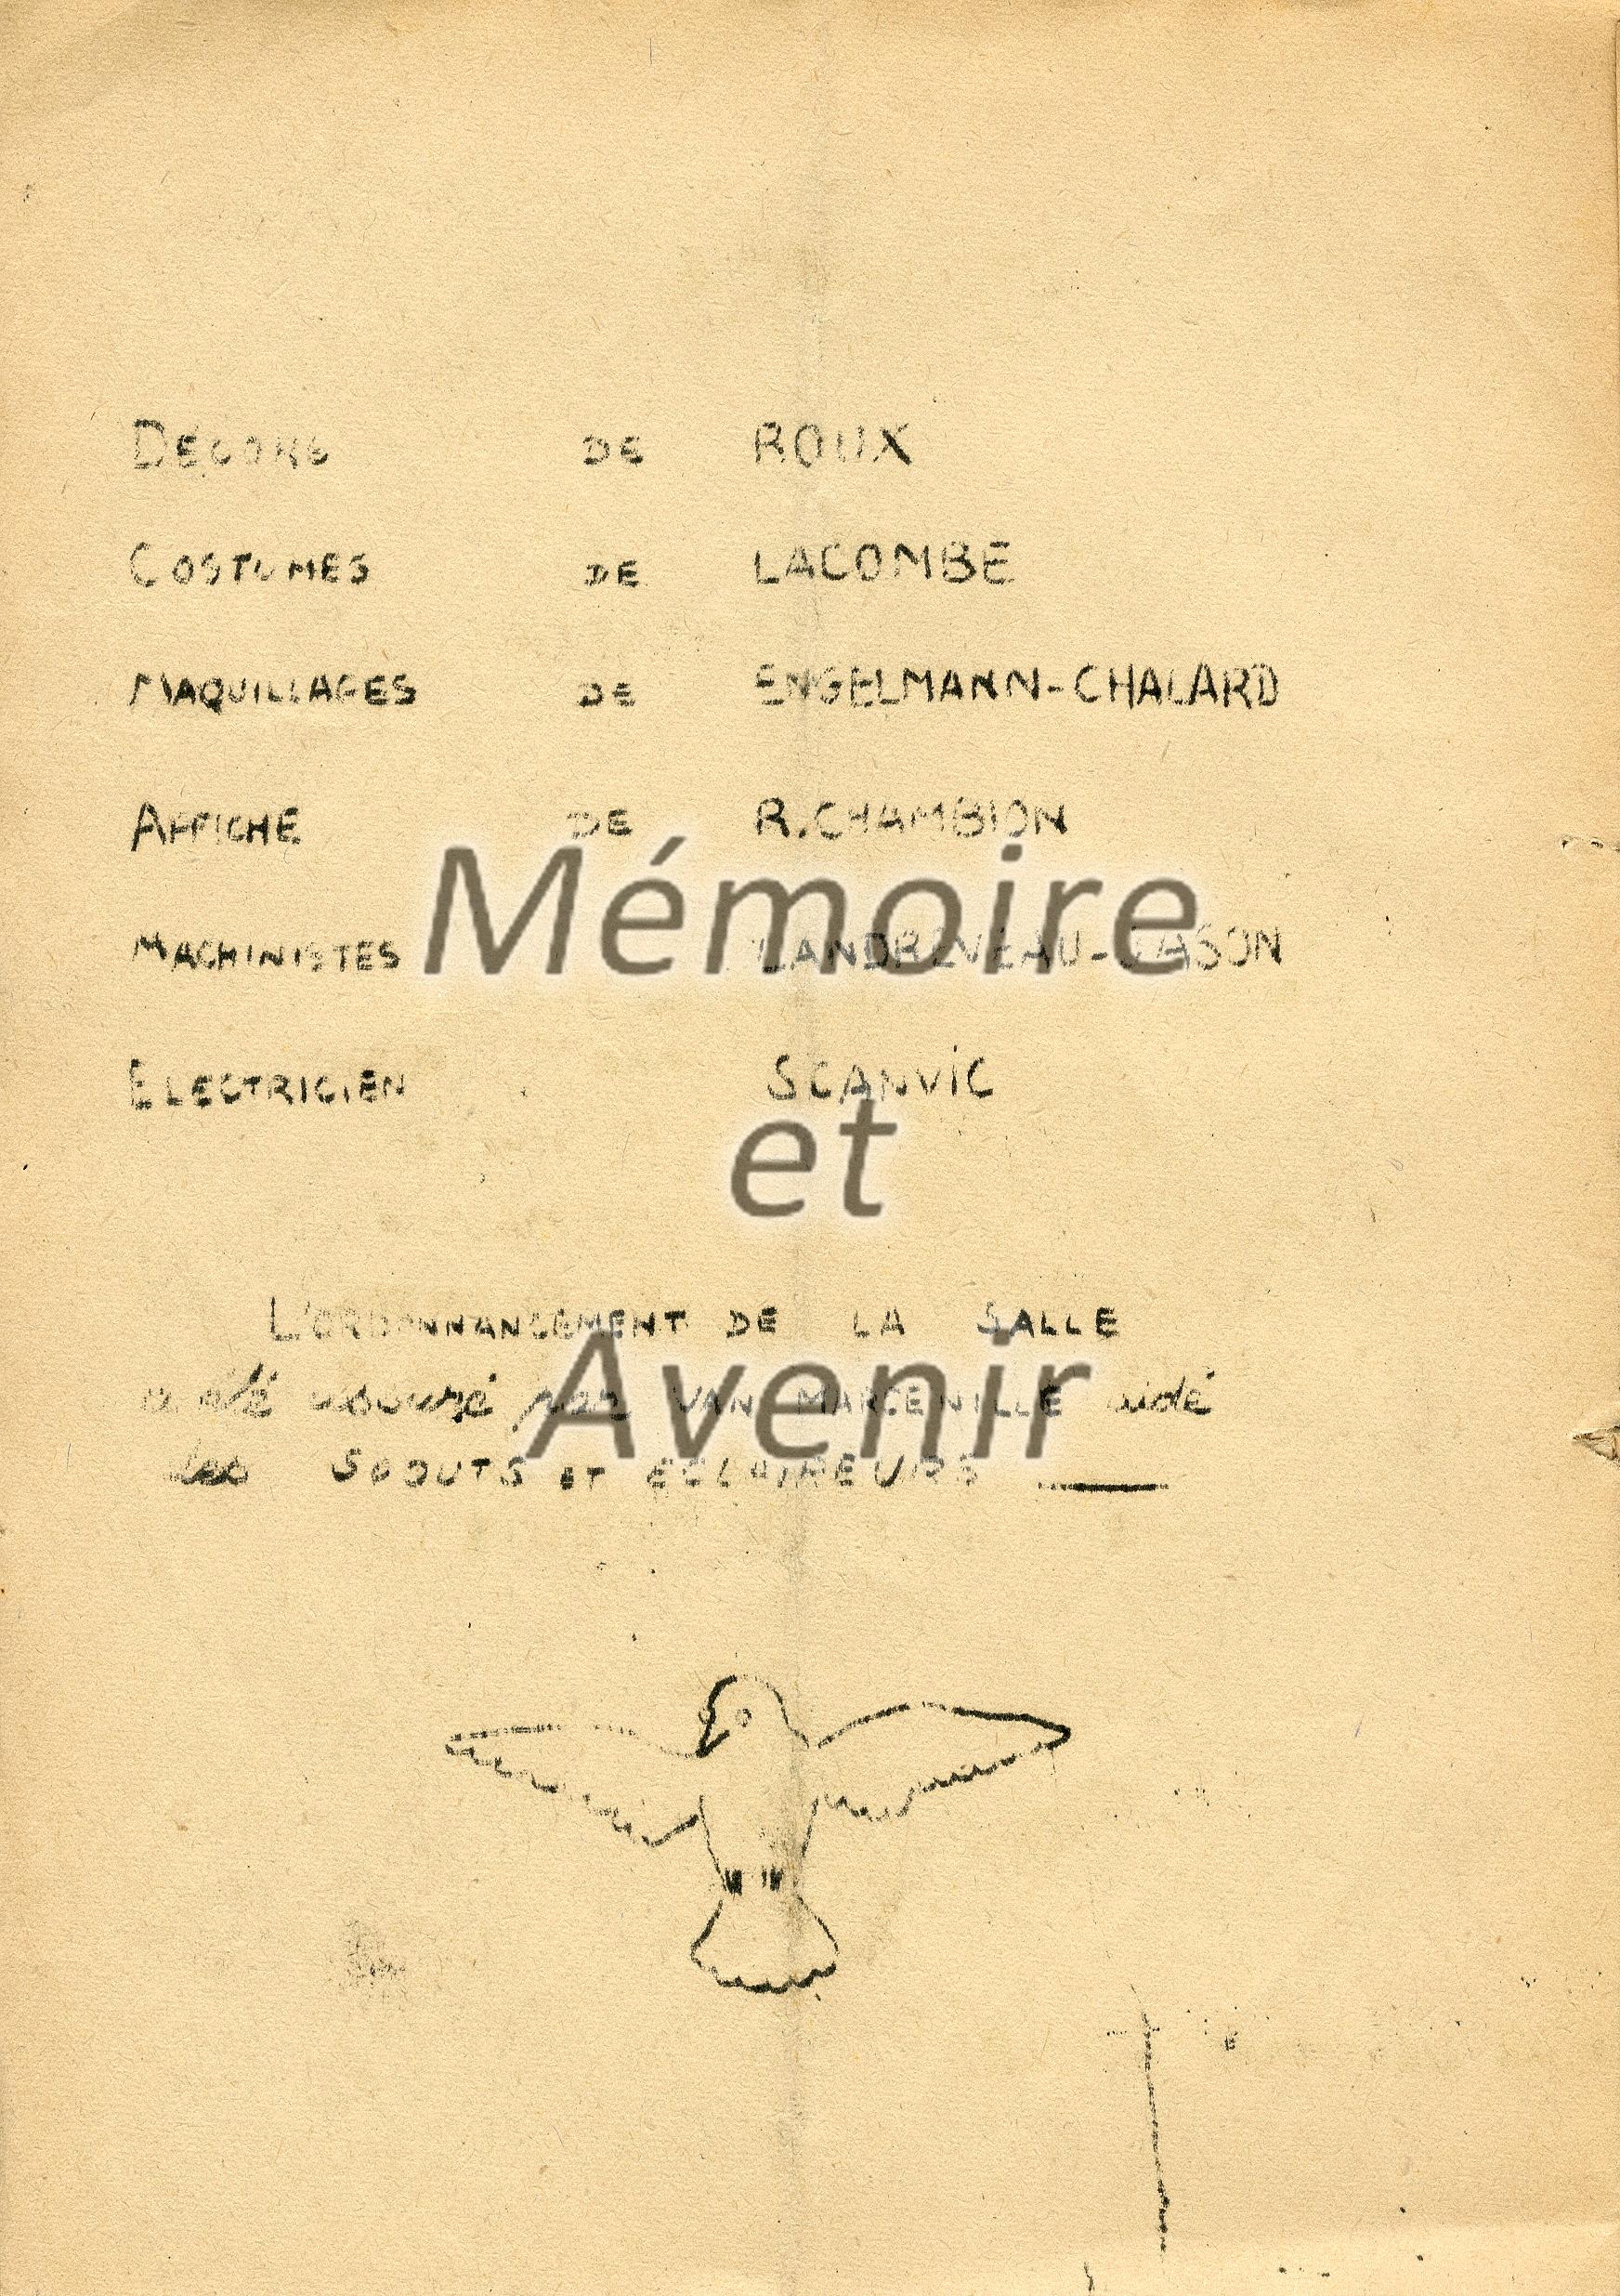 DECORS DE ROUX
COSTUMES DE LACOMBE
MAQUILLAGES DE ENGELMANN-CHALARD
AFFICHE DE R.CHAMBION
Mémoire
MACHINISTES
ELECTRICIEN SCANVIC
et
L'ORDONNANCEMENT DE LA SALLE
Avenir
a été assuré par VAN MARCENILLE aidé
des SCOUTS ET ECLAIREURS